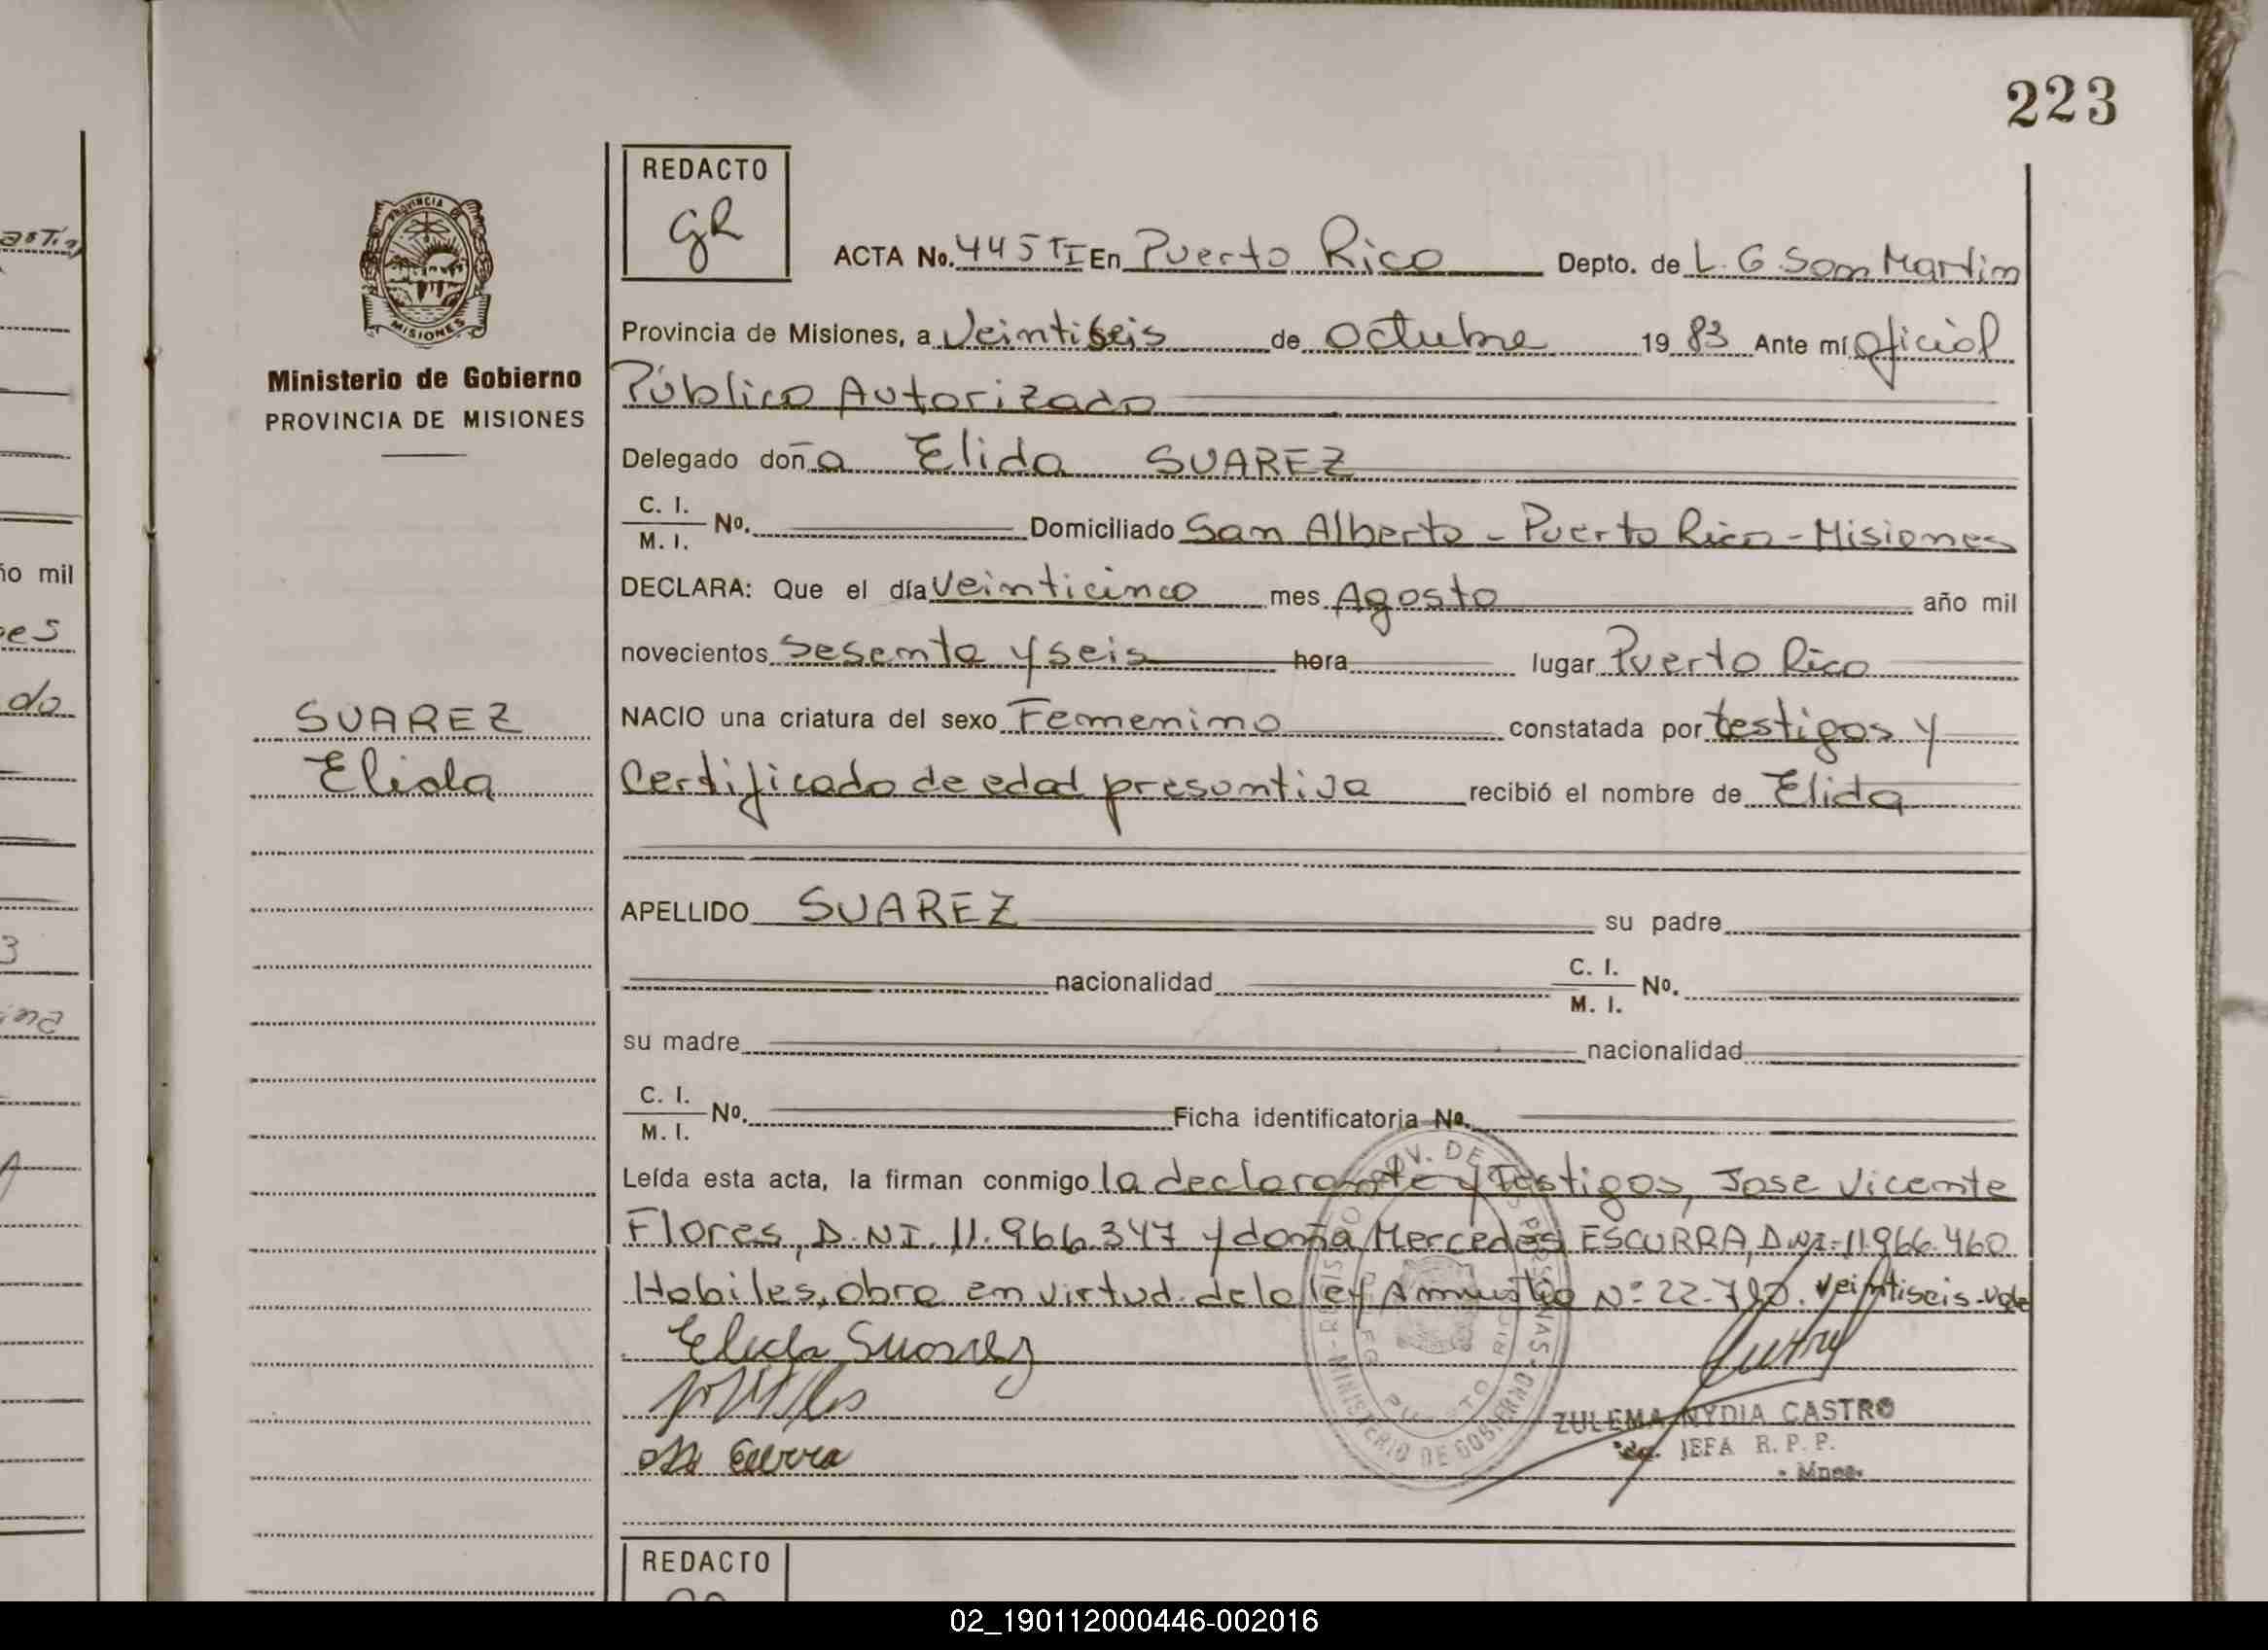 223
REDACTO
GR
PROVINCIA DE
MISIONES
Ministerio de Gobierno
PROVINCIA DE MISIONES
ACTA No. 445 TI En Puerto Rico Depto. de L. G. San Martin
Provincia de Misiones, a Veintiseis de Octubre 19 83 Ante mí Oficial
Público Autorizado
Delegado doña Elida SUAREZ
C. I.
M. I. No. Domiciliado San Alberto - Puerto Rico - Misiones
DECLARA: Que el día Veinticinco mes Agosto año mil
novecientos Sesenta y seis hora lugar Puerto Rico
SUAREZ
Elida
NACIO una criatura del sexo Femenino constatada por testigos y
Certificado de edad presuntiva recibió el nombre de Elida
APELLIDO SUAREZ su padre
nacionalidad C. I.
M. I. No.
su madre nacionalidad
C. I.
M. I. No. Ficha identificatoria No.
Leída esta acta, la firman conmigo la declarante y Testigos, Jose Vicente
Flores, D.N.I. 11.966.347 y doña Mercedes ESCURRA, D.N.I.-11.966.460
Habiles, obra en virtud de la ley Amnistia Nº 22.780. Veintiseis-Vale
Elida Suarez
Escurra
ZULEMA NYDIA CASTRO
JEFA R. P. P.
- Mnes.
MINISTERIO DE GOBIERNO
REDACTO
ño mil
es
do
3
ina
02_190112000446-002016